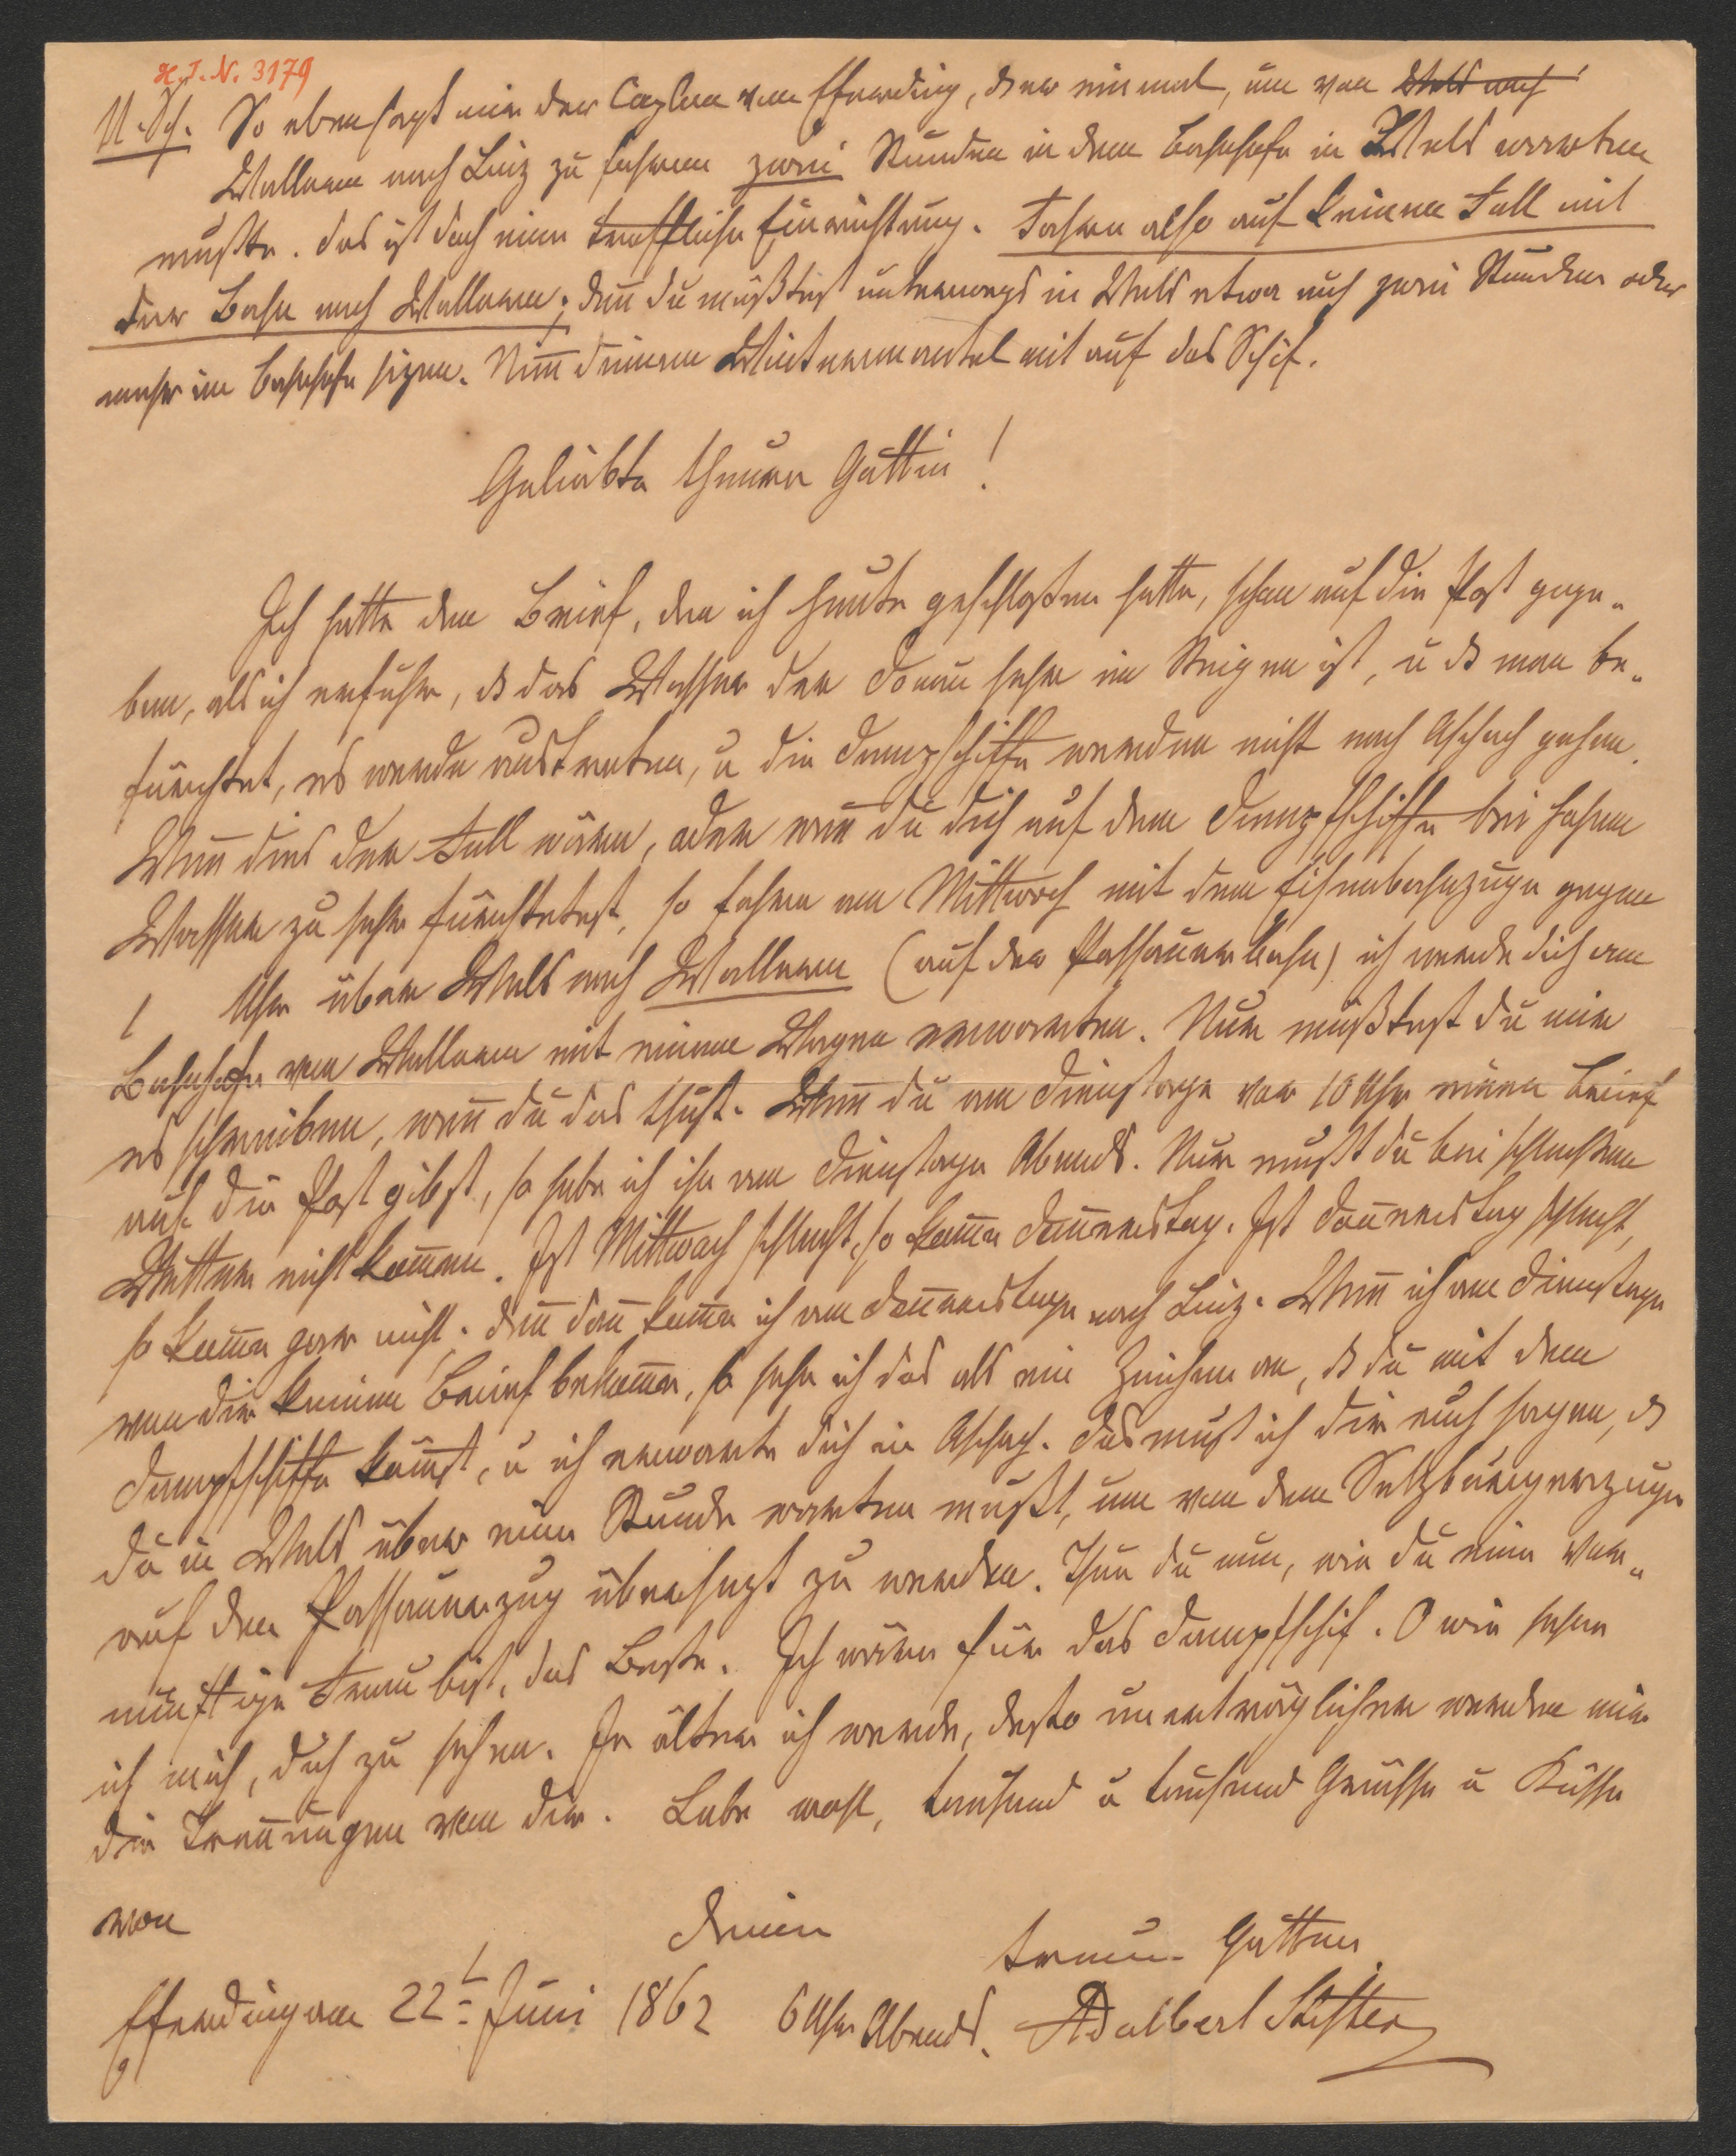 H. I. N. 3179
N. Sch. So eben sagt mir der Caplan von Efferding, dß er einmal, um von Wels nach
Wallern nach Linz zu fahren zwei Stunden in dem Bahnhofe in Wels warten
mußte. Das ist doch eine treffliche Einrichtung. Fahre also auf keinen Fall mit
der Bahn nach Wallern; den̄ du müßtest unterwegs in Wels etwa auch zwei Stunden oder
mehr im Bahnhofe sizen. Nim̄ deinen Wintermantel mit auf das Schif.
Geliebte theure Gattin!
Ich hatte den Brief, den ich heute geschloßen hatte, schon auf die Post gege„
ben, als ich erfuhr, dß das Wasser der Donau sehr im Steigen ist, u dß man be„
fürchtet, es werde austreten, u die Dampfschiffe werden nicht nach Aschach gehen.
Wen̄ dies der Fall wäre, oder wen̄ du dich auf dem Dampfschiffe bei hohem
Wasser zu sehr fürchtetest, so fahre am Mittwoch mit dem Eisenbahnzuge gegen
1 Uhr über Wels nach Wallern (auf der Passauerbahn) ich werde dich am
Bahnhofe von Wallern mit einem Wagen erwarten. Nur müßtest du mir
es schreiben, wen̄ du das thust. Wen̄ du am Dienstage vor 10 Uhr einen Brief
auf die Post gibst, so habe ich ihn am Dienstage Abends. Nur mußt du bei schlechtem
Wetter nicht kom̄en. Ist Mittwoch schlecht, so kom̄e Don̄erstag. Ist Don̄erstag schlecht,
so kom̄e gar nicht. Den̄ dan̄ kom̄e ich am Don̄erstage nach Linz. Wen̄ ich am Dienstage
von dir keinen Brief bekom̄e, so sehe ich das als ein Zeichen an, dß du mit dem
Dampfschiffe köm̄st, u ich erwarte dich in Aschach. Das muß ich dir auch sagen, dß
du in Wels über eine Stunde warten mußt, um von dem Salzburgerzuge
auf den Passauerzug übersezt zu werden. Thue du nun, wie du eine ver„
nünftige Frau bist, das Beste. Ich wäre für das Dampfschif. O wie sehne
ich mich, dich zu sehen. Je älter ich werde, desto unerträglicher werden mir
die Tren̄ungen von dir. Lebe wohl, tausend u tausend Grüsse u Küsse
von deinem
treuen Gatten
Efferding am 22t Juni 1862 6 Uhr Abends. Adalbert Stifter